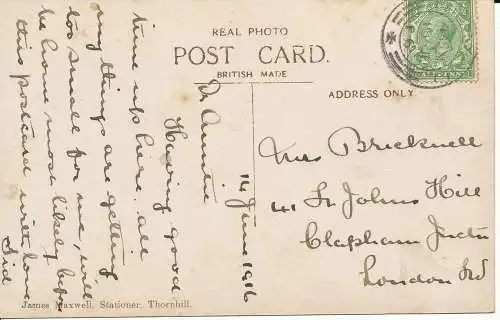 REAL PHOTO
POST CARD.
BRITISH MADE
ADDRESS ONLY
14 June 1916
Dr Auntie
Having good
time up here. all
my things are getting
too small for me, will
be home most likely before
this postcard with love
Sid
Mrs Bricknell
41 St Johns Hill
Clapham Junct
London
James Maxwell, Stationer, Thornhill.